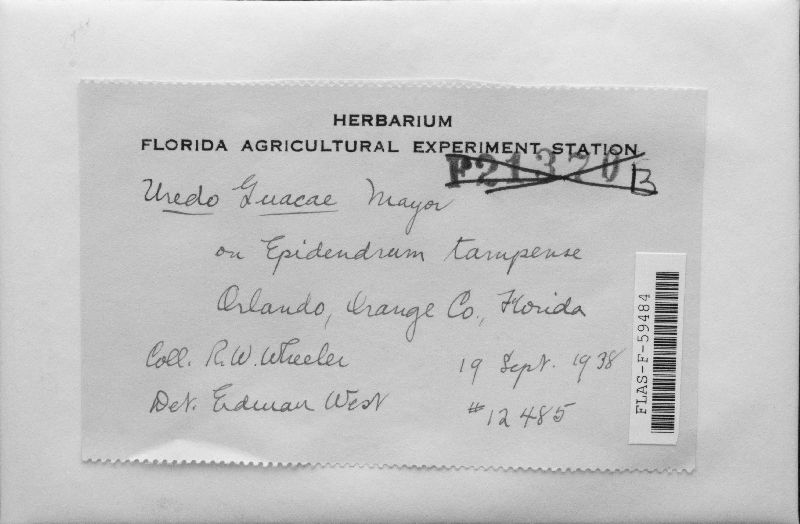 HERBARIUM
FLORIDA AGRICULTURAL EXPERIMENT STATION
F21370 B
Uredo Guacae Mayor
on Epidendrum tampense
Orlando, Orange Co., Florida
Coll. R.W. Wheeler 19 Sept. 1938
Det. Erdman West #12485
FLAS-F-59484